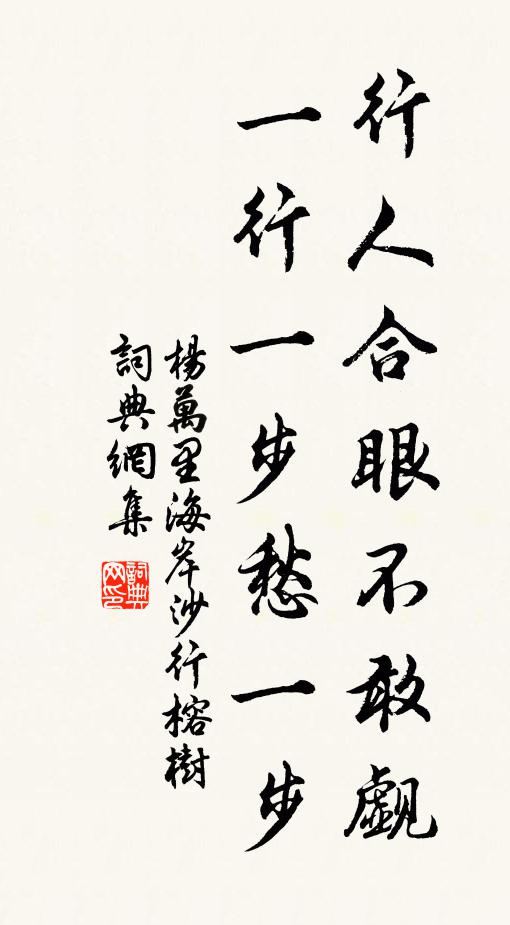 行人合眼不敢觑
一行一步愁一步
楊萬里海岸沙行榕樹
詞典網集
詞典
网印